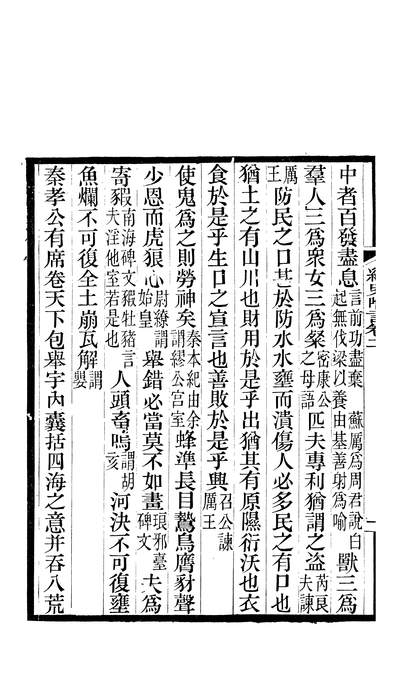 中者百發盡息言前功盡棄　蘇厲爲周君說白起無伐梁以養由基善射爲喻獸三爲
羣人三爲衆女三爲粲密康公之母語匹夫專利猶謂之盜芮良夫諫
厲王防民之口甚於防水水壅而潰傷人必多民之有口也
猶土之有山川也財用於是乎出猶其有原隰衍沃也衣
食於是乎生口之宣言也善敗於是乎興召公諫厲王
使鬼爲之則勞神矣秦本紀由余謂繆公宮室蜂準長目鷙鳥膺豺聲
少恩而虎狼心尉繚謂始皇舉錯必當莫不如畫琅邪臺碑文夫爲
寄豭南海碑文豭牡豬言夫淫他室若是也人頭畜嗚謂胡亥河決不可復壅
魚爛不可復全土崩瓦解謂嬰
秦孝公有席卷天下包舉宇內囊括四海之意并吞八荒